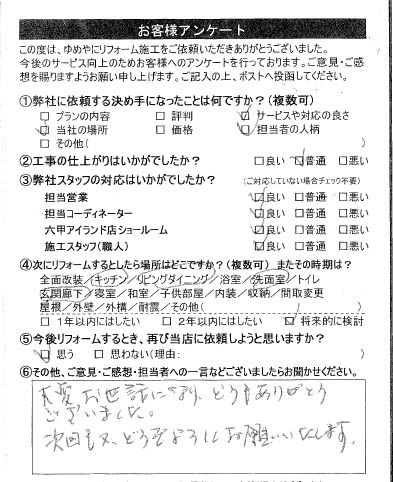 お客様アンケート
この度は、ゆめやにリフォーム施工をご依頼いただきありがとうございました。
今後のサービス向上のためお客様へのアンケートを行っております。ご意見・ご感
想を賜りますようお願い申し上げます。ご記入の上、ポストへ投函してください。
①弊社に依頼する決め手になったことは何ですか?(複数可)
□ プランの内容 □ 評判 □ サービスや対応の良さ
□ 当社の場所 □ 価格 □ 担当者の人柄
□ その他( )
②工事の仕上がりはいかがでしたか? □良い □普通 □悪い
③弊社スタッフの対応はいかがでしたか? (ご対応していない場合チェック不要)
担当営業 □良い □普通 □悪い
担当コーディネーター □良い □普通 □悪い
六甲アイランド店ショールーム □良い □普通 □悪い
施工スタッフ(職人) □良い □普通 □悪い
④次にリフォームするとしたら場所はどこですか?(複数可) またその時期は?
全面改装/キッチン/リビングダイニング/浴室/洗面室/トイレ
玄関廊下/寝室/和室/子供部屋/内装/収納/間取変更
屋根/外壁/外構/耐震/その他( )
□ 1年以内にはしたい □ 2年以内にはしたい □ 将来的に検討
⑤今後リフォームするとき、再び当店に依頼しようと思いますか?
□ 思う □ 思わない(理由: )
⑥その他、ご意見・ご感想・担当者への一言などございましたらお聞かせください。
大変お世話になり、どうもありがとう
ございました。
次回も又、どうぞよろしくお願いいたします。